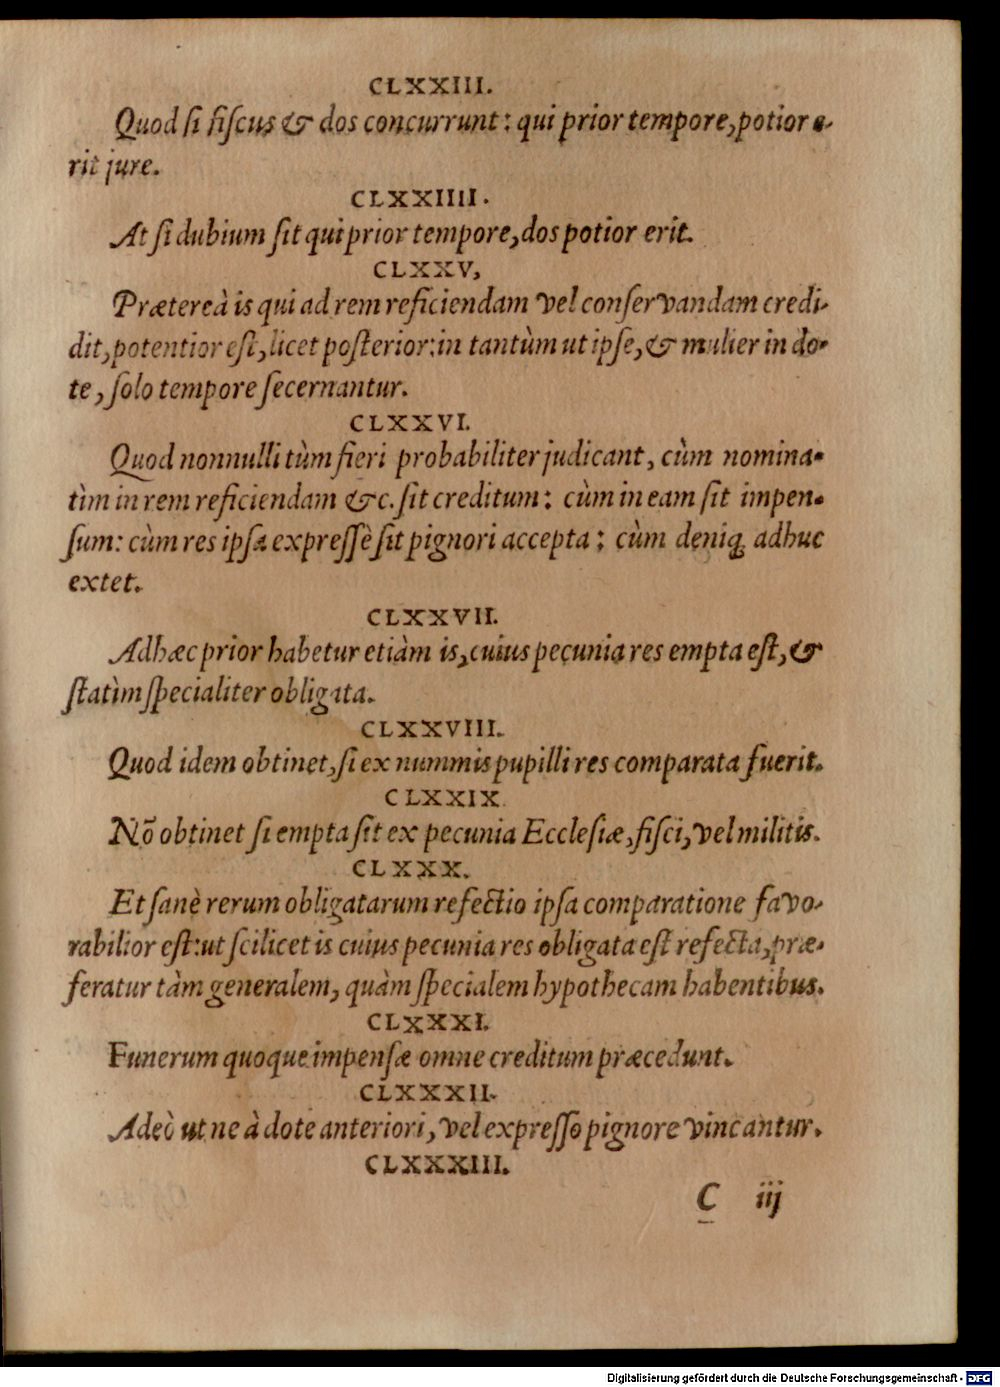 CLXXIII.
Quod si fiscus & dos concurrunt: qui prior tempore, potior e-
rit jure.
CLXXIIII.
At si dubium sit qui prior tempore, dos potior erit.
CLXXV,
Prætereà is qui ad rem reficiendam vel conservandam credi-
dit, potentior est, licet posterior: in tantùm ut ipse, & mulier in do-
te, solo tempore secernantur.
CLXXVI.
Quod nonnulli tùm fieri probabiliter judicant, cùm nomina-
tìm in rem reficiendam &c. sit creditum: cùm in eam sit impen-
sum: cùm res ipsa expressè sit pignori accepta: cùm deniq; adhuc
extet.
CLXXVII.
Adhæc prior habetur etiàm is, cuius pecunia res empta est, &
statìm specialiter obligata.
CLXXVIII.
Quod idem obtinet, si ex nummis pupilli res comparata fuerit.
CLXXIX.
Nõ obtinet si empta sit ex pecunia Ecclesiæ, fisci, vel militis.
CLXXX.
Et sanè rerum obligatarum refectio ipsa comparatione favo-
rabilior est: ut scilicet is cuius pecunia res obligata est refecta, præ-
feratur tàm generalem, quàm specialem hypothecam habentibus.
CLXXXI.
Funerum quoque impensæ omne creditum præcedunt.
CLXXXII.
Adeò ut ne à dote anteriori, vel expresso pignore vincantur.
CLXXXIII.
C iij
Digitalisierung gefördert durch die Deutsche Forschungsgemeinschaft - DFG